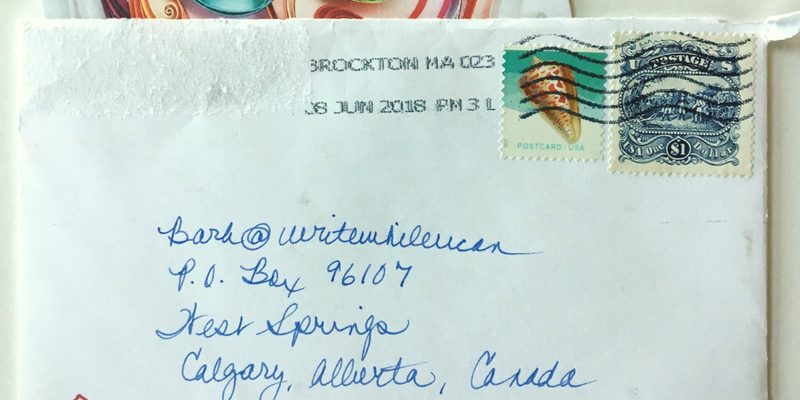 BROCKTON MA 023
JUN 2018 PM 3 L
POSTCARD | USA
U POSTAGE S
USA One $1 Dollar
Barb@writewhileucan
P.O. Box 96107
West Springs
Calgary, Alberta, Canada